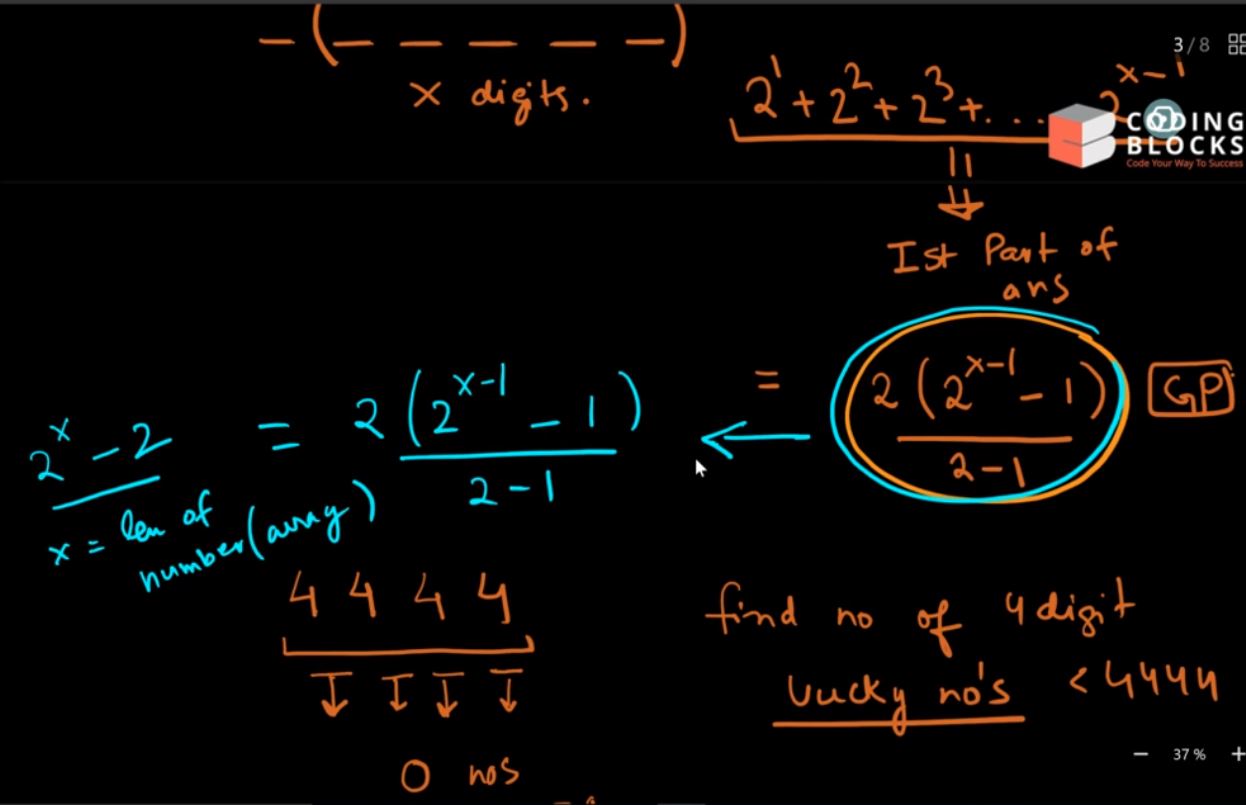 3/8
— (— — — — —)
x digits.
2^1 + 2^2 + 2^3 + . . . 2^{x-1}
CODING
BLOCKS
Code Your Way To Success
Ist Part of
ans
2^x - 2 = 2 (2^{x-1} - 1) / 2-1 ← = 2 (2^{x-1} - 1) / 2-1 GP
x = len of
number (array)
4 4 4 4
find no of 4 digit
lucky no's < 4444
0 nos
37 %